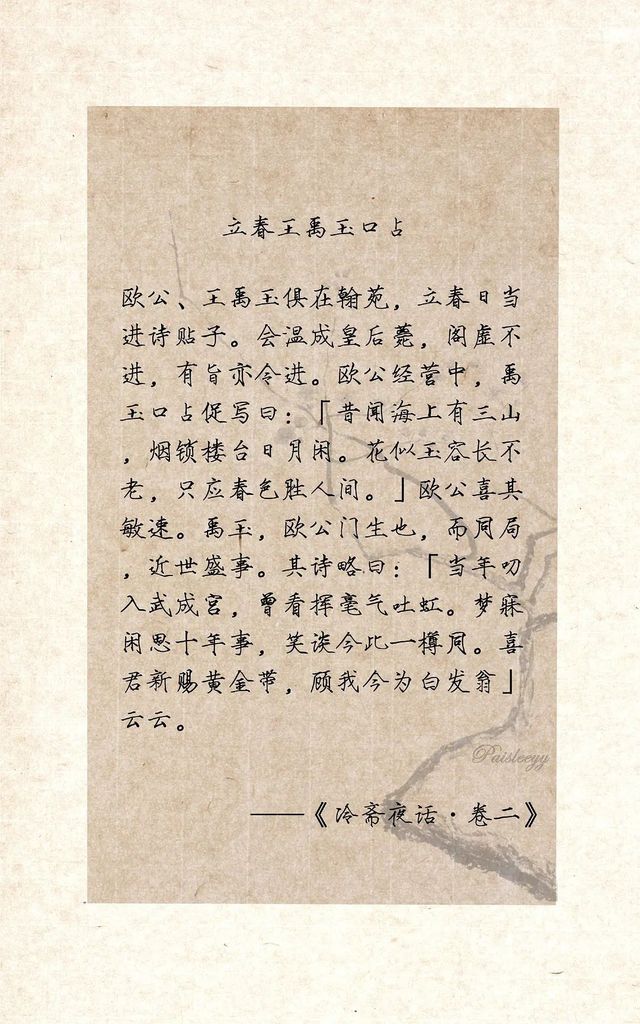 立春王禹玉口占
欧公、王禹玉俱在翰苑，立春日当
进诗贴子。会温成皇后薨，阁虚不
进，有旨亦令进。欧公经营中，禹
玉口占促写曰：「昔闻海上有三山
，烟锁楼台日月闲。花似玉容长不
老，只应春色胜人间。」欧公喜其
敏速。禹玉，欧公门生也，而同局
，近世盛事。其诗略曰：「当年叨
入武成宫，曾看挥毫气吐虹。梦寐
闲思十年事，笑谈今此一樽同。喜
君新赐黄金带，顾我今为白发翁」
云云。
Paisleeyy
——《冷斋夜话·卷二》